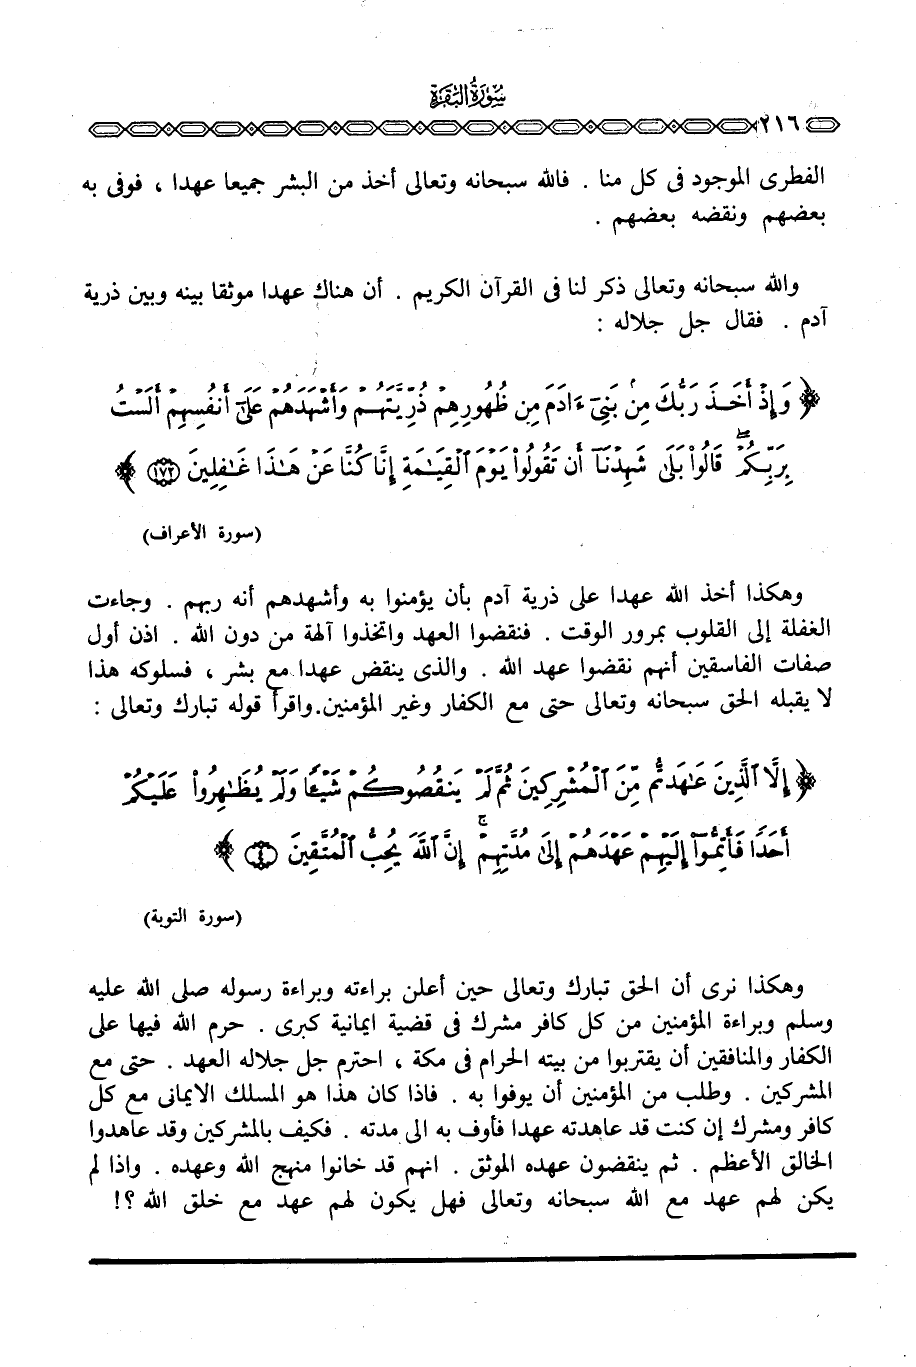 سورة البقرة
٢١٦
الفطرى الموجود فى كل منا . فالله سبحانه وتعالى أخذ من البشر جميعا عهدا ، فوفى به
بعضهم ونقضه بعضهم .
والله سبحانه وتعالى ذكر لنا فى القرآن الكريم . أن هناك عهدا موثقا بينه وبين ذرية
آدم . فقال جل جلاله :
﴿ وَإِذْ أَخَذَ رَبُّكَ مِنۢ بَنِىٓ ءَادَمَ مِن ظُهُورِهِمْ ذُرِّيَّتَهُمْ وَأَشْهَدَهُمْ عَلَىٰٓ أَنفُسِهِمْ أَلَسْتُ
بِرَبِّكُمْ ۖ قَالُوا۟ بَلَىٰ شَهِدْنَآ أَن تَقُولُوا۟ يَوْمَ ٱلْقِيَـٰمَةِ إِنَّا كُنَّا عَنْ هَـٰذَا غَـٰفِلِينَ ١٧٢ ﴾
(سورة الأعراف)
وهكذا أخذ الله عهدا على ذرية آدم بأن يؤمنوا به وأشهدهم أنه ربهم . وجاءت
الغفلة إلى القلوب بمرور الوقت . فنقضوا العهد واتخذوا آلهة من دون الله . اذن أول
صفات الفاسقين أنهم نقضوا عهد الله . والذى ينقض عهدا مع بشر ، فسلوكه هذا
لا يقبله الحق سبحانه وتعالى حتى مع الكفار وغير المؤمنين.واقرأ قوله تبارك وتعالى :
﴿ إِلَّا ٱلَّذِينَ عَـٰهَدتُّم مِّنَ ٱلْمُشْرِكِينَ ثُمَّ لَمْ يَنقُصُوكُمْ شَيْـًٔا وَلَمْ يُظَـٰهِرُوا۟ عَلَيْكُمْ
أَحَدًا فَأَتِمُّوٓا۟ إِلَيْهِمْ عَهْدَهُمْ إِلَىٰ مُدَّتِهِمْ ۚ إِنَّ ٱللَّهَ يُحِبُّ ٱلْمُتَّقِينَ ٤ ﴾
(سورة التوبة)
وهكذا نرى أن الحق تبارك وتعالى حين أعلن براءته وبراءة رسوله صلى الله عليه
وسلم وبراءة المؤمنين من كل كافر مشرك فى قضية ايمانية كبرى . حرم الله فيها على
الكفار والمنافقين أن يقتربوا من بيته الحرام فى مكة ، احترم جل جلاله العهد . حتى مع
المشركين . وطلب من المؤمنين أن يوفوا به . فاذا كان هذا هو المسلك الايمانى مع كل
كافر ومشرك إن كنت قد عاهدته عهدا فأوف به الى مدته . فكيف بالمشركين وقد عاهدوا
الخالق الأعظم . ثم ينقضون عهده الموثق . انهم قد خانوا منهج الله وعهده . واذا لم
يكن لهم عهد مع الله سبحانه وتعالى فهل يكون لهم عهد مع خلق الله ؟!